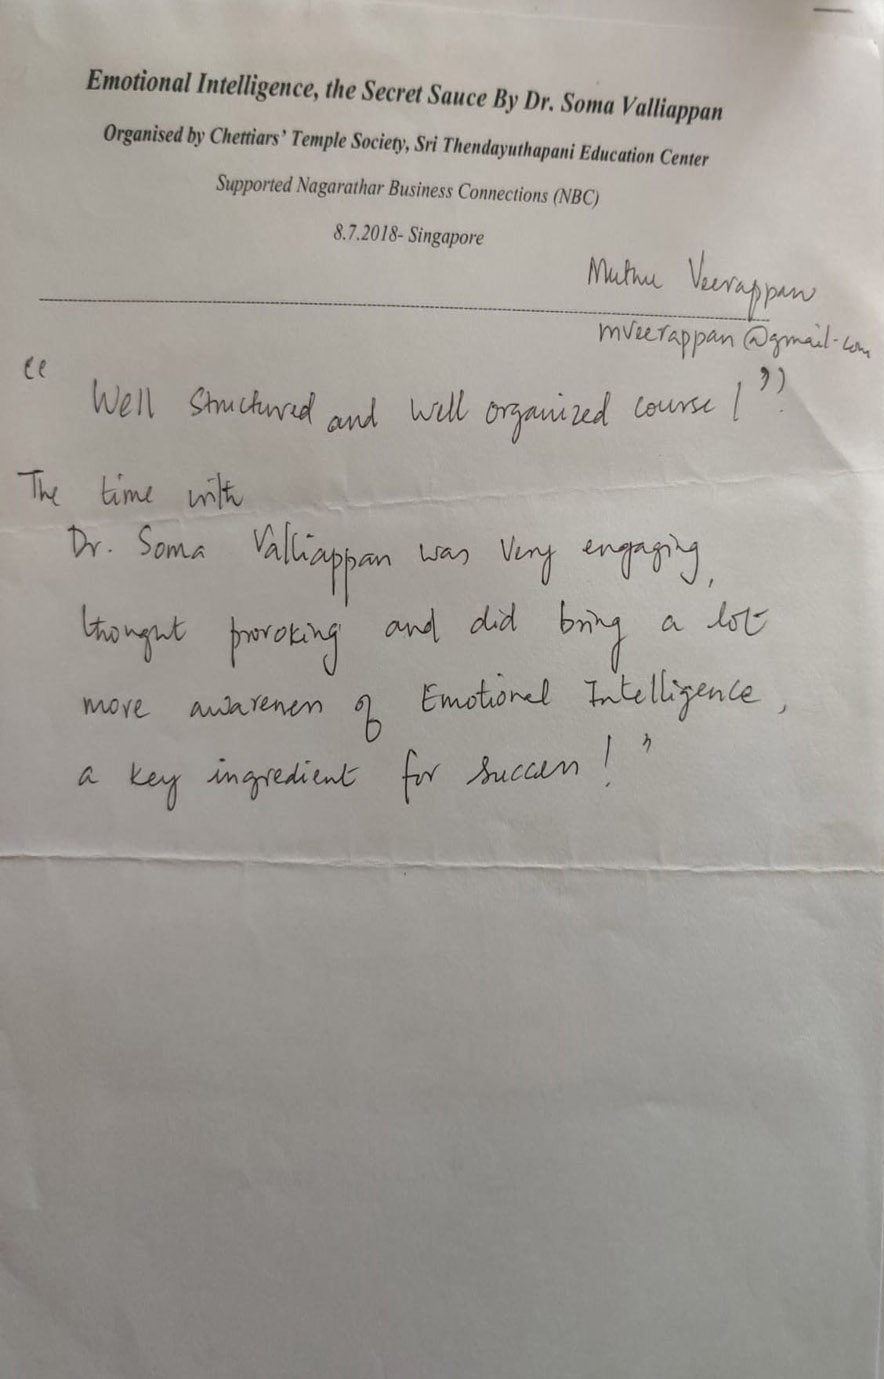 Emotional Intelligence, the Secret Sauce By Dr. Soma Valliappan
Organised by Chettiars' Temple Society, Sri Thendayuthapani Education Center
Supported Nagarathar Business Connections (NBC)
8.7.2018- Singapore
Muthu Veerappan
mveerappan@gmail.com
"Well Structured and well organized course!"
The time with
Dr. Soma Valliappan was very engaging,
thought provoking and did bring a lot
more awareness of Emotional Intelligence,
a key ingredient for success!"